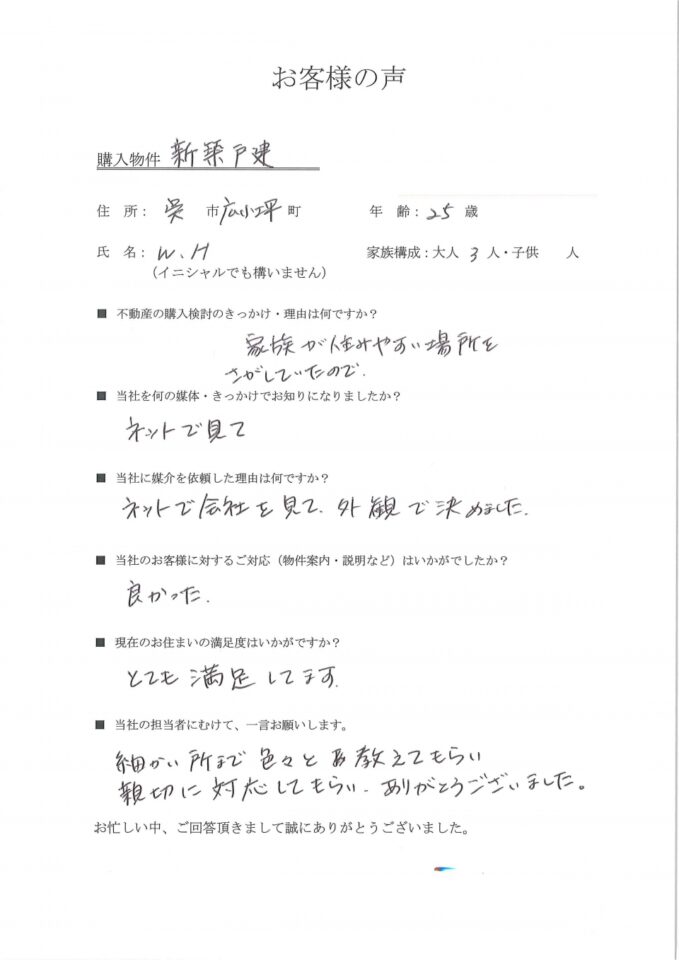 お客様の声
購入物件 新築戸建
住 所： 呉 市 広小坪 町 年 齢： 25 歳
氏 名： W.H 家族構成：大人 3 人・子供 人
（イニシャルでも構いません）
■ 不動産の購入検討のきっかけ・理由は何ですか？
家族が住みやすい場所を
さがしていたので.
■ 当社を何の媒体・きっかけでお知りになりましたか？
ネットで見て
■ 当社に媒介を依頼した理由は何ですか？
ネットで会社を見て. 外観で決めました.
■ 当社のお客様に対するご対応（物件案内・説明など）はいかがでしたか？
良かった.
■ 現在のお住まいの満足度はいかがですか？
とても満足してます.
■ 当社の担当者にむけて、一言お願いします。
細かい所まで色々とお教えてもらい
親切に対応してもらい. ありがとうございました。
お忙しい中、ご回答頂きまして誠にありがとうございました。